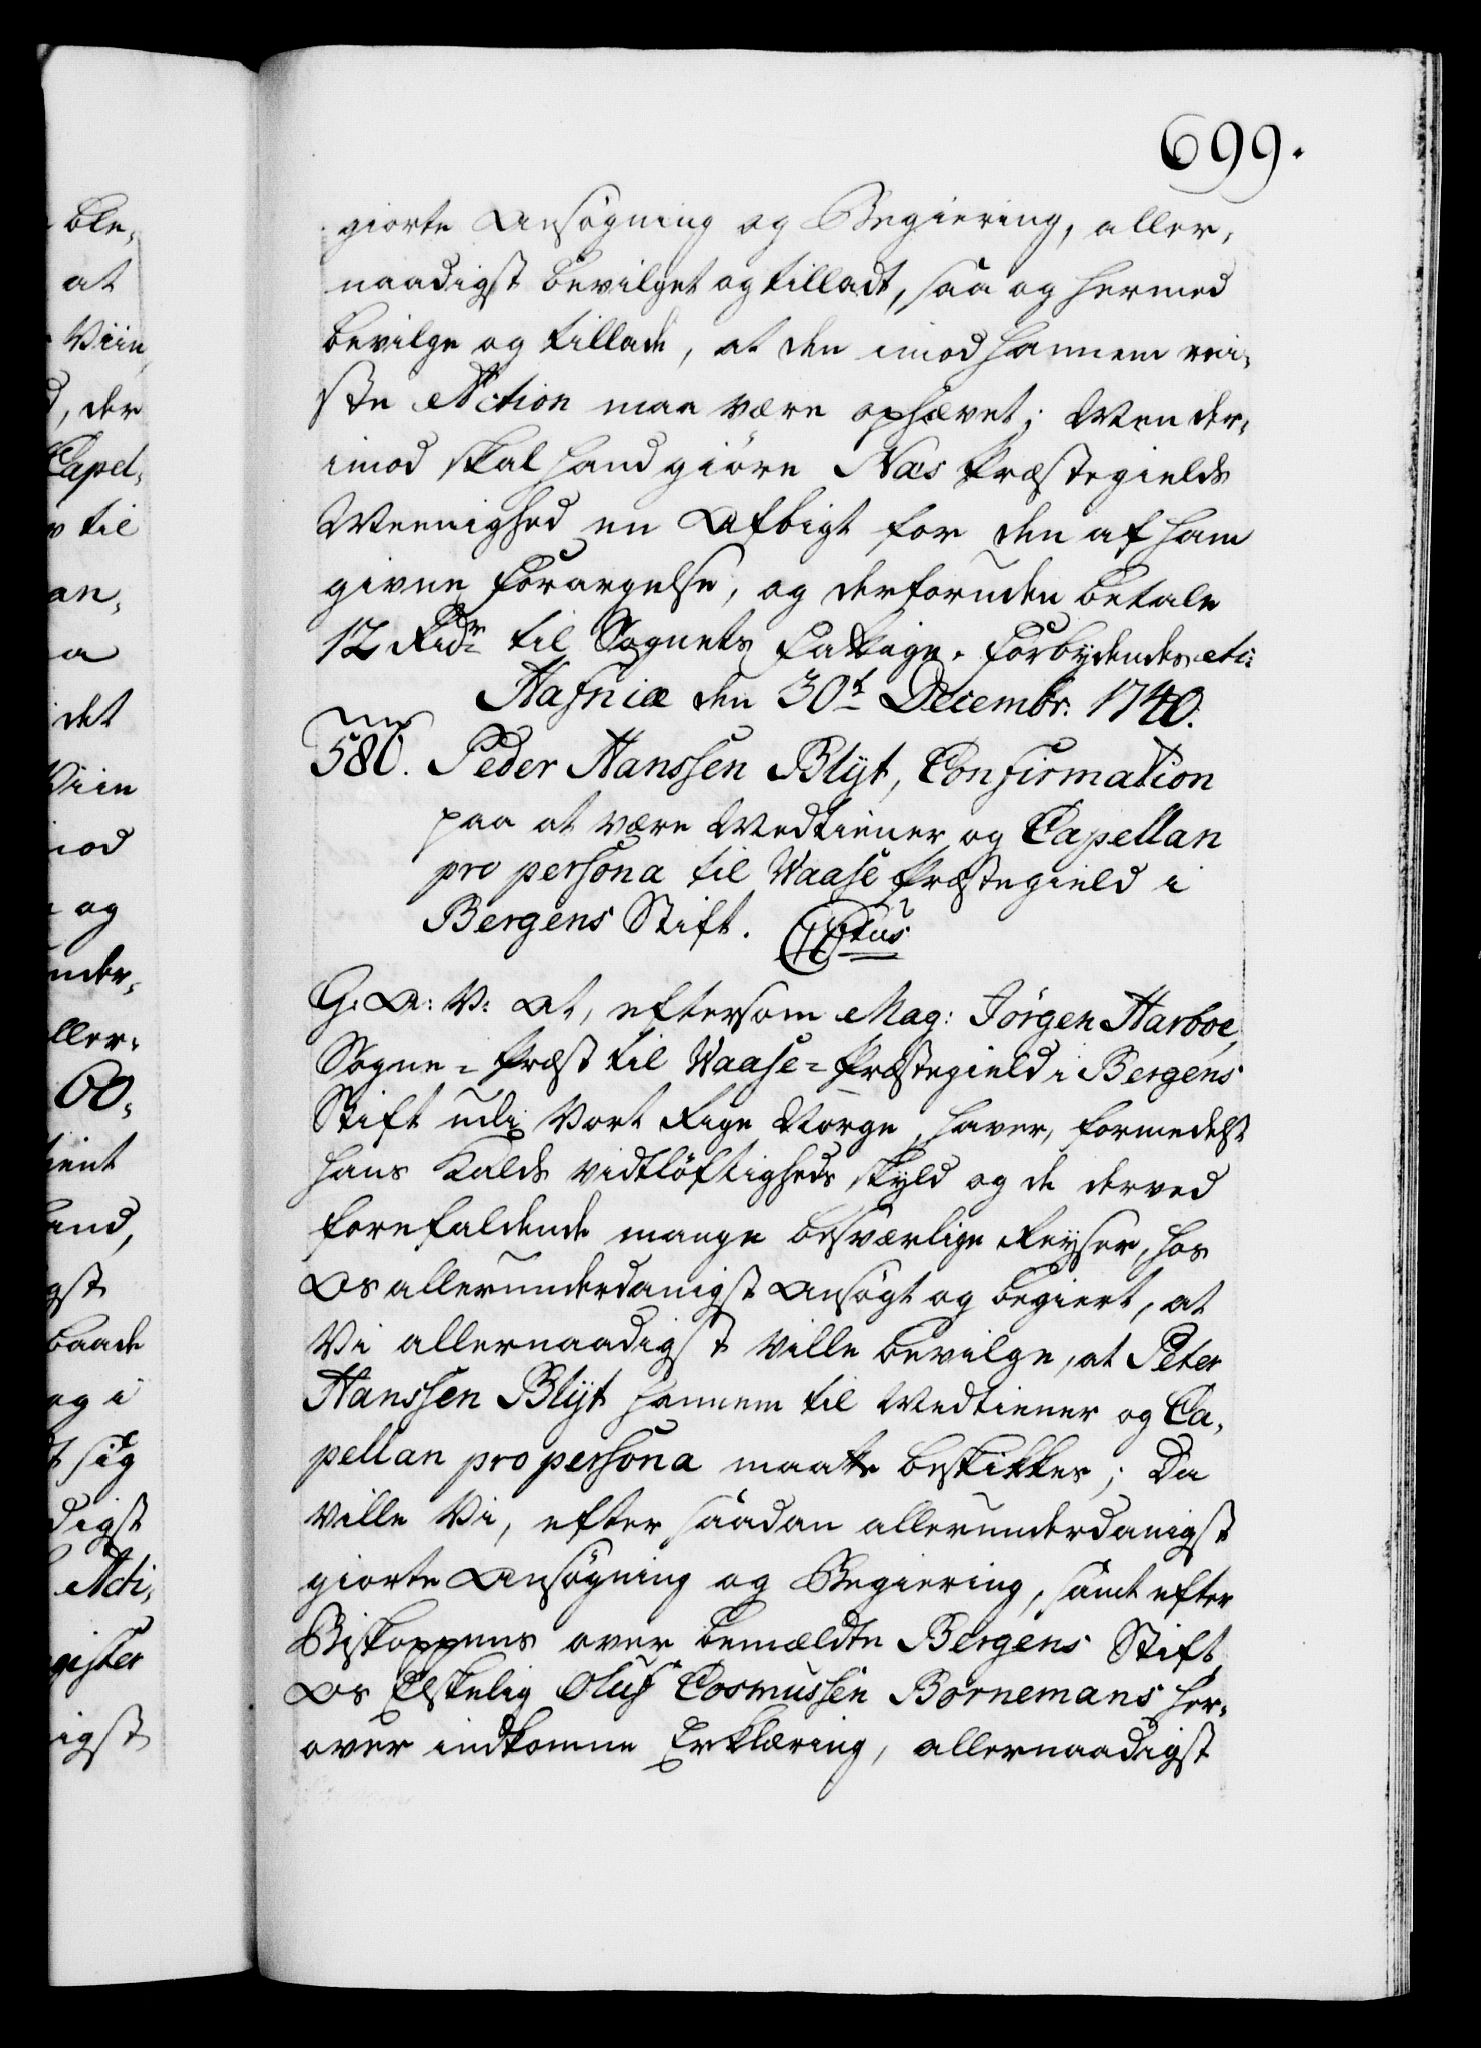 699.
giorte Ansøgning og Begiering, aller-
naadigst bevilget og tilladt, saa og hermed
bevilge og tillade, at den imod hannem rei-
ste Action maa være ophævet; Men der-
imod skal hand giøre Næs Præstegields
Meenighed en Afbigt for den af ham
givne Forargelse, og derforuden betale
12 Rdr til Sognets Fattige. Forbydendes etc:
Hafniæ den 30t Decembr. 1740.
580. Peder Hanssen Blÿt, Confirmation
paa at være Medtiener og Capellan
pro persona til Waase Præstegield i
Bergens Stift.
G: A: V: At, eftersom Mag: Jörgen Harboe,
Sogne-Præst til Waase-Præstegield i Bergens
Stift udi Vort Rige Norge, haver, formedelst
hans Kalds vidtløftigheds skyld og de derved
forefaldende mange besværlige Reyser, hos
Os allerunderdanigst ansøgt og begiert, at
Vi allernaadigst ville bevilge, at Peter
Hanssen Blÿt hannem til Medtiener og Ca-
pellan pro persona maatte beskikkes; Da
ville Vi, efter saadan allerunderdanigst
giorte Ansøgning og Begiering, samt efter
Biskoppens over bemældte Bergens Stift,
Os Elskelig Oluf Cosmussen Bornemans her-
over indkomne Erklæring, allernaadigst
ble-
at
Viin
, der
Capel-
til
an-
a
det
Viin
og
under-
ller-
60-
ient
and,
gst
baade
og i
sig
digst
Acti-
gister
igst